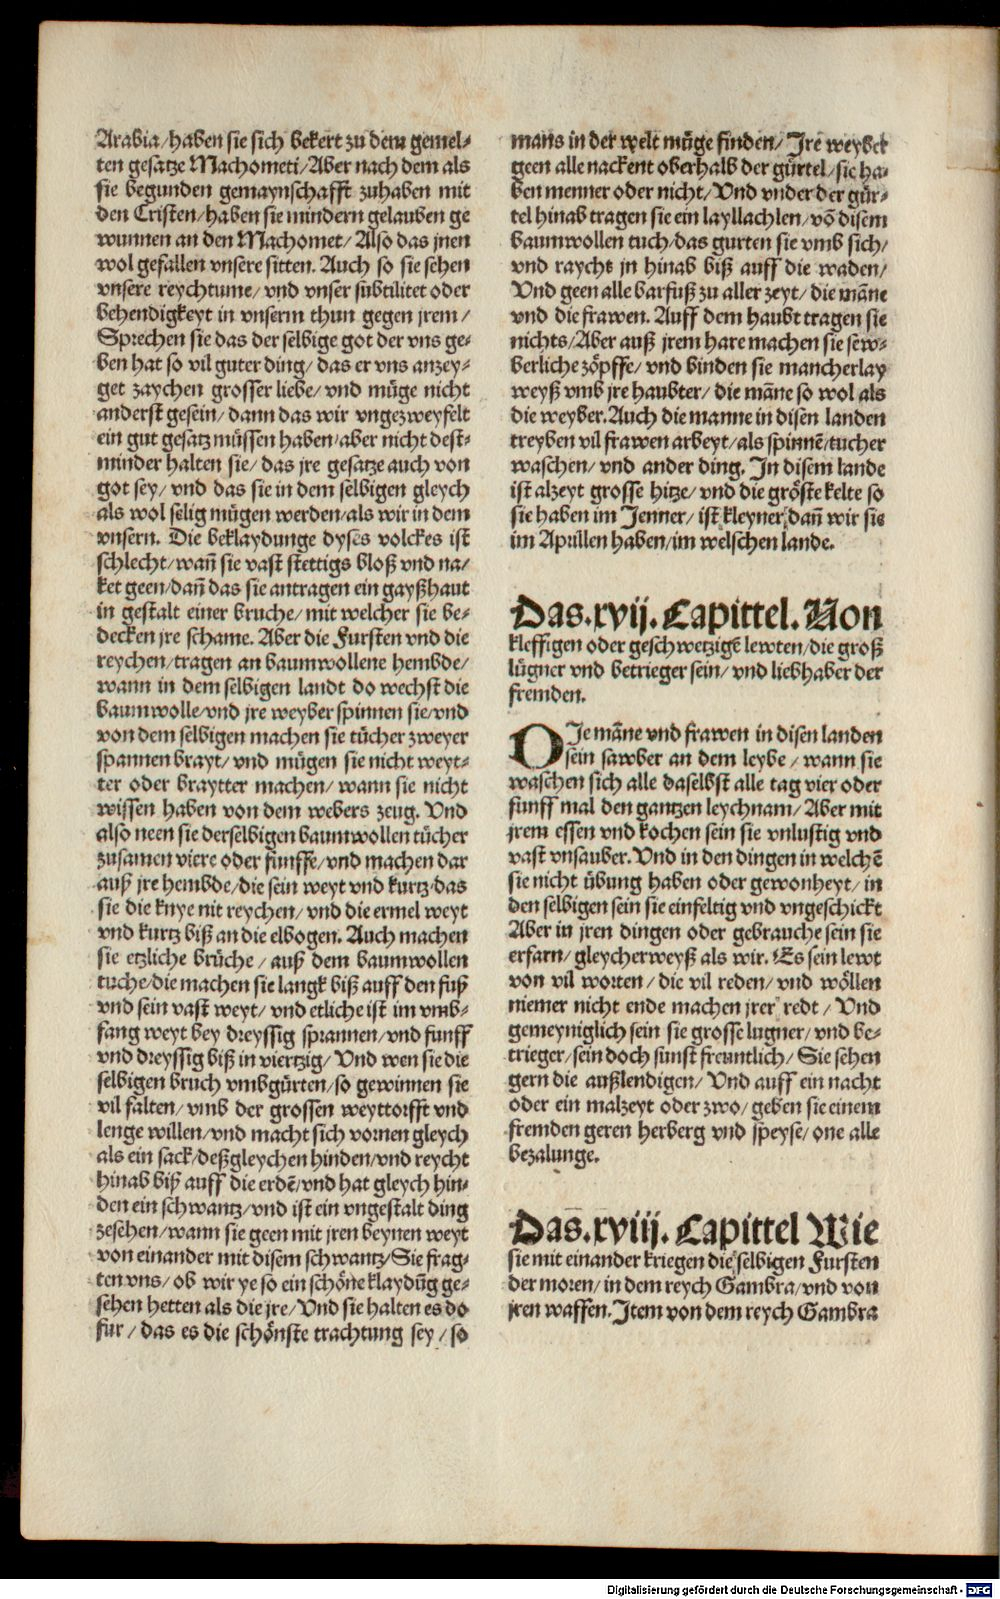 Arabia/haben sie sich bekert zu dem gemel⸗
ten gesatze Machometi/Aber nach dem als
sie begunden gemaynschafft zuhaben mit
den Cristen/haben sie mindern gelauben ge
wunnen an den Machomet/Also das jnen
wol gefallen vnsere sitten. Auch so sie sehen
vnsere reychtume/vnd vnser subtilitet oder
behendigkeyt in vnserm thun gegen jrem/
Sprechen sie das der selbige got der vns ge⸗
ben hat so vil guter ding/das er vns anzey⸗
get zaychen grosser liebe/vnd müge nicht
anderst gesein/dann das wir vngezweyfelt
ein gut gesatz müssen haben/aber nicht dest⸗
minder halten sie/das jre gesatze auch von
got sey/vnd das sie in dem selbigen gleych
als wol selig mügen werden/als wir in dem
vnsern. Die beklaydunge dyses volckes ist
schlecht/wañ sie vast stettigs bloß vnd na/
ket geen/dañ das sie antragen ein gayßhaut
in gestalt einer bruche/mit welcher sie be⸗
decken jre schame. Aber die Fursten vnd die
reychen/tragen an baumwollene hembde/
wann in dem selbigen landt do wechst die
baumwolle/vnd jre weyber spinnen sie/vnd
von dem selbigen machen sie tücher zweyer
spannen brayt/vnd mügen sie nicht weyt⸗
ter oder braytter machen/wann sie nicht
wissen haben von dem webers zeug. Vnd
also neen sie derselbigen baumwollen tücher
zusamen viere oder funffe/vnd machen dar
auß jre hembde/die sein weyt vnd kurtz das
sie die knye nit reychen/vnd die ermel weyt
vnd kurtz biß an die elbogen. Auch machen
sie etzliche brüche/auß dem baumwollen
tuche/die machen sie langk biß auff den fuß
vnd sein vast weyt/vnd etliche ist im vmb⸗
fang weyt bey dreyssig sprannen/vnd funff
vnd dreyssig biß in viertzig/Vnd wen sie die
selbigen bruch vmbgürten/so gewinnen sie
vil falten/vmb der grossen weyttorfft vnd
lenge willen/vnd macht sich vornen gleych
als ein sack/deßgleychen hinden/vnd reycht
hinab biß auff die erdē/vnd hat gleych hin⸗
den ein schwantz/vnd ist ein vngestalt ding
zesehen/wann sie geen mit jren beynen weyt
von einander mit disem schwantz/Sie frag⸗
ten vns/ob wir ye so ein schöne klaydūg ge⸗
sehen hetten als die jre/Vnd sie halten es do
fur/das es die schönste trachtung sey/so
mans in der welt müge finden/Jre weyber
geen alle nackent oberhalb der gürtel/sie ha⸗
ben menner oder nicht/Vnd vnder der gür⸗
tel hinab tragen sie ein layllachlen/võ disem
baumwollen tuch/das gurten sie vmb sich/
vnd raycht jn hinab biß auff die waden/
Vnd geen alle barfuß zu aller zeyt/die mãne
vnd die frawen. Auff dem haubt tragen sie
nichts/Aber auß jrem hare machen sie sew⸗
berliche zöpffe/vnd binden sie mancherlay
weyß vmb jre haubter/die mãne so wol als
die weyber. Auch die manne in disen landen
treyben vil frawen arbeyt/als spinnē/tucher
waschen/vnd ander ding. In disem lande
ist alzeyt grosse hitze/vnd die gröste kelte so
sie haben im Jenner/ist kleyner dañ wir sie
im Aprillen haben/im welschen lande.
Das.xvij.Capittel.Von
kleffigen oder geschwetzigē lewten/die groß
lügner vnd betrieger sein/vnd liebhaber der
fremden.
DJe mãne vnd frawen in disen landen
sein sawber an dem leybe/wann sie
waschen sich alle daselbst alle tag vier oder
funff mal den gantzen leychnam/Aber mit
jrem essen vnd kochen sein sie vnlustig vnd
vast vnsauber. Vnd in den dingen in welchē
sie nicht übung haben oder gewonheyt/in
den selbigen sein sie einfeltig vnd vngeschickt
Aber in jren dingen oder gebrauche sein sie
erfarn/gleycherweyß als wir. Es sein lewt
von vil worten/die vil reden/vnd wöllen
niemer nicht ende machen jrer redt/Vnd
gemeyniglich sein sie grosse lugner/vnd be⸗
trieger/sein doch sunst freuntlich/Sie sehen
gern die außlendigen/Vnd auff ein nacht
oder ein malzeyt oder zwo/geben sie einem
fremden geren herberg vnd speyse/one alle
bezalunge.
Das.xviij.Capittel Wie
sie mit einander kriegen die selbigen Fursten
der moren/in dem reych Gambra/vnd von
jren waffen. Item von dem reych Gambra
Digitalisierung gefördert durch die Deutsche Forschungsgemeinschaft - DFG